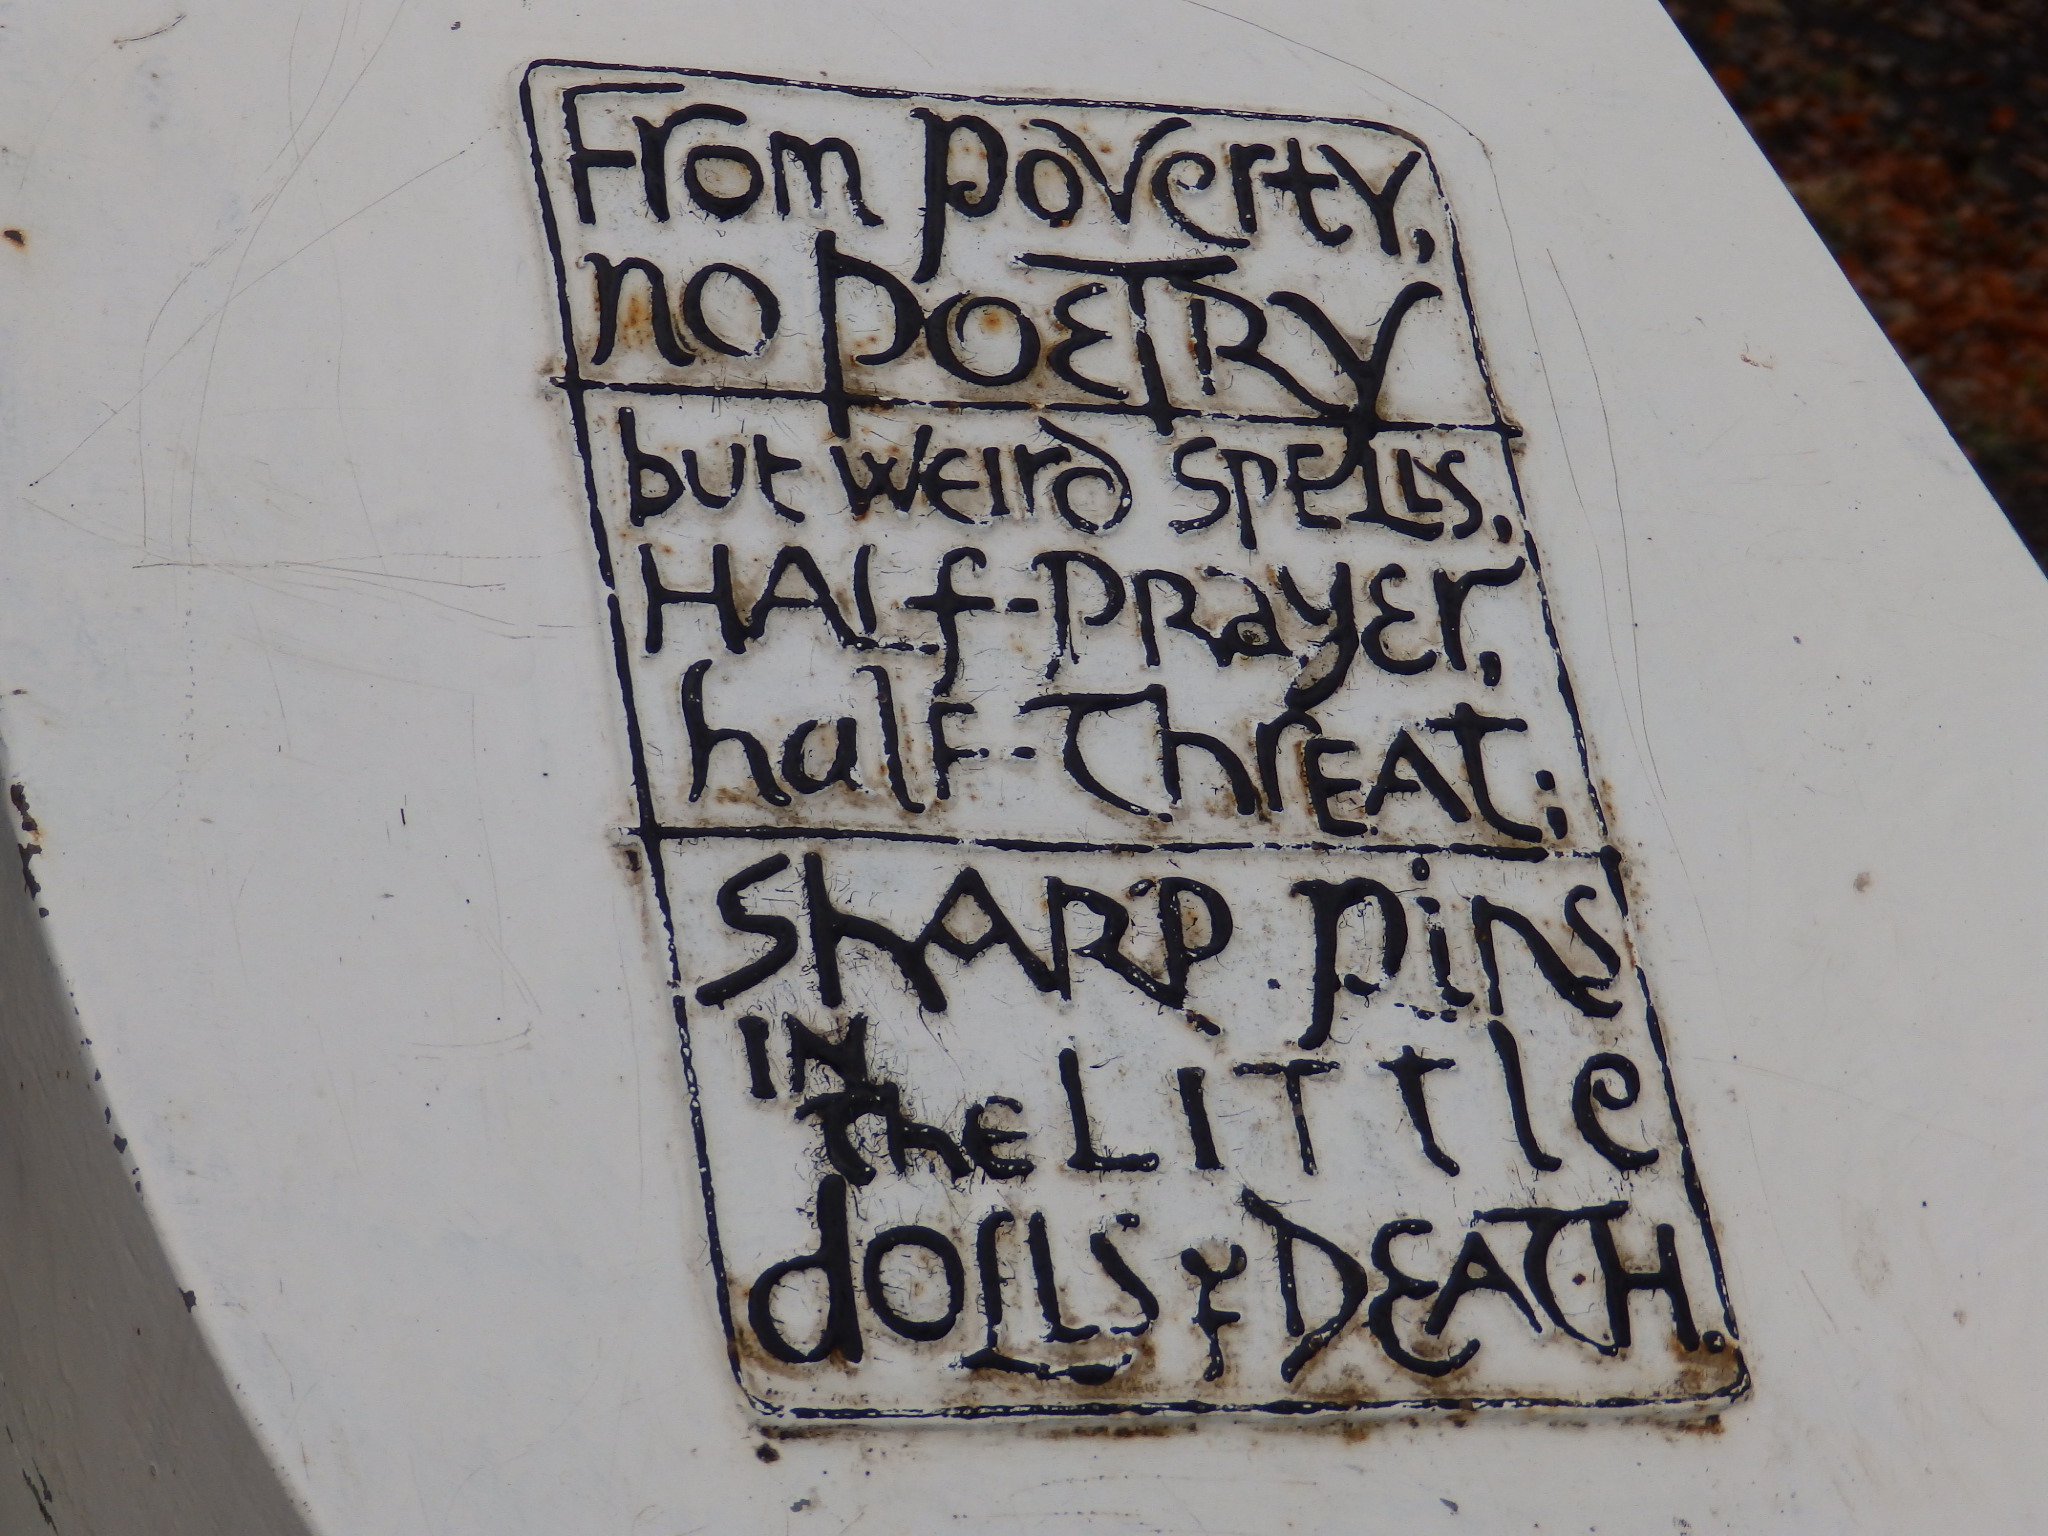 From poverty,
no POETRY
but weird spells,
HALf-PRayEr,
half-ThrEAT;
ShARP pins
IN
The LITtle
dOLLS y DEATH.